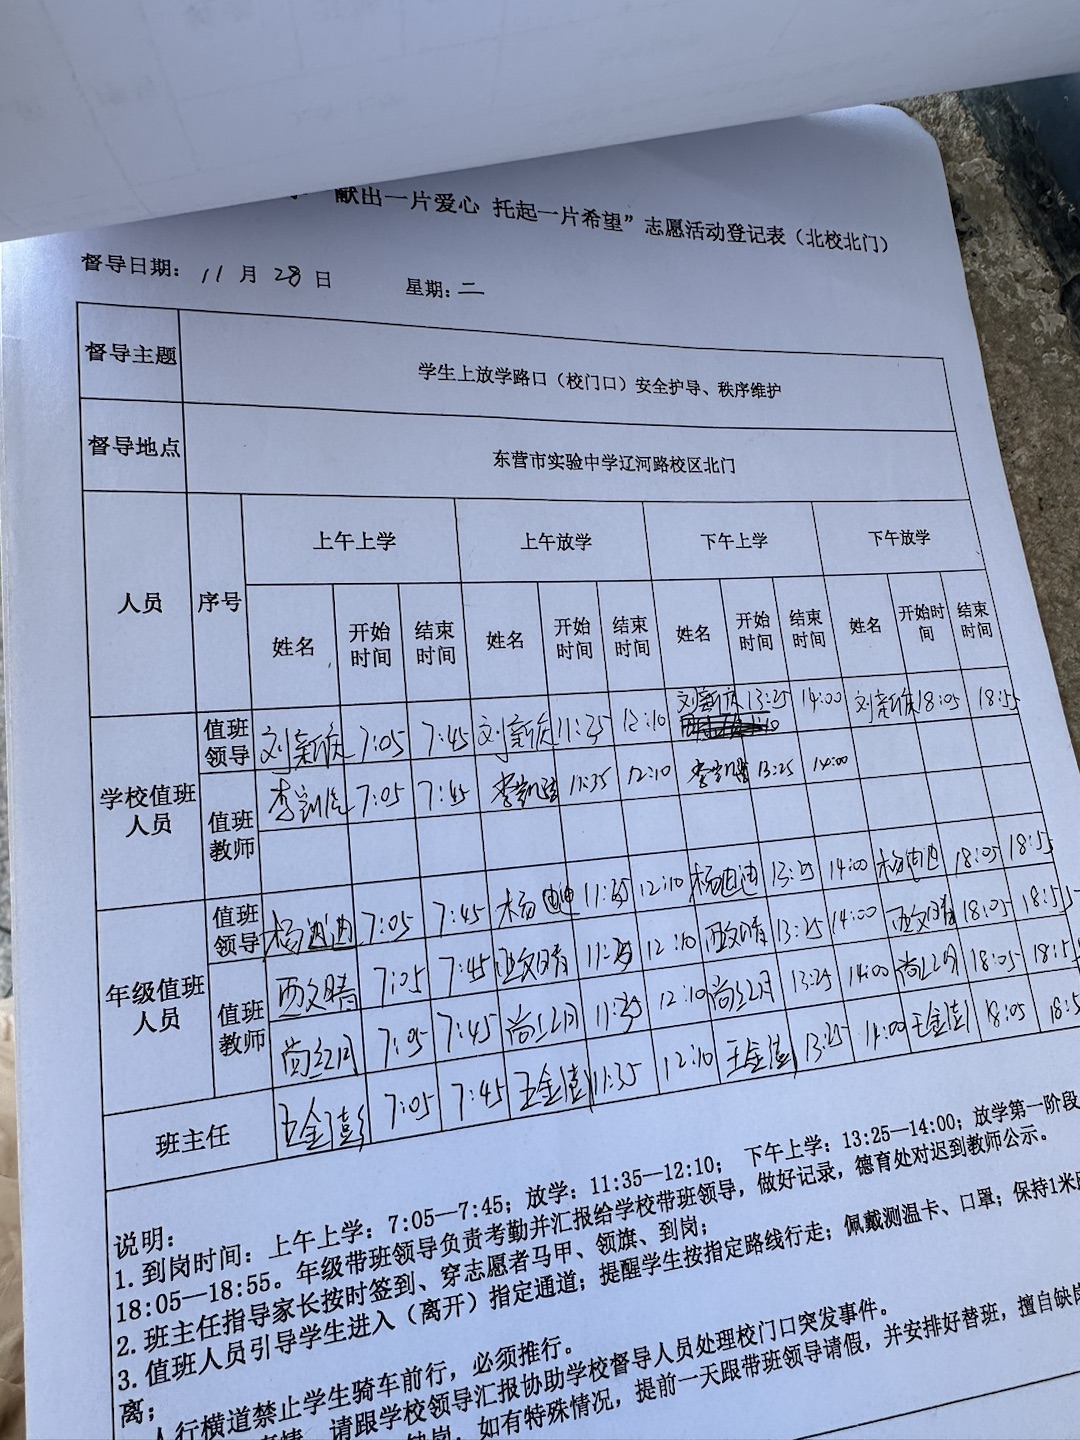 献出一片爱心 托起一片希望”志愿活动登记表（北校北门）
督导日期： 11 月 28 日 星期：二
督导主题 学生上放学路口（校门口）安全护导、秩序维护
督导地点 东营市实验中学辽河路校区北门
人员 序号 上午上学 上午放学 下午上学 下午放学
姓名 开始时间 结束时间 姓名 开始时间 结束时间 姓名 开始时间 结束时间 姓名 开始时间 结束时间
学校值班人员
值班领导 7:05 7:45 11:35 12:10 13:25 14:00 18:05 18:55
值班教师 7:05 7:45 11:35 12:10 13:25 14:00
年级值班人员
值班领导 杨迪迪 7:05 7:45 杨迪迪 11:35 12:10 杨迪迪 13:25 14:00 杨迪迪 18:05 18:55
值班教师 7:05 7:45 11:35 12:10 13:25 14:00 18:05 18:55
尚红月 7:05 7:45 尚红月 11:35 12:10 尚红月 13:25 14:00 尚红月 18:05 18:5
班主任 王金澎 7:05 7:45 王金澎 11:35 12:10 王金澎 13:25 14:00 王金澎 18:05 18:5
说明：
1.到岗时间：上午上学：7:05—7:45；放学：11:35—12:10； 下午上学：13:25—14:00；放学第一阶段
18:05—18:55。年级带班领导负责考勤并汇报给学校带班领导，做好记录，德育处对迟到教师公示。
2.班主任指导家长按时签到、穿志愿者马甲、领旗、到岗；
3.值班人员引导学生进入（离开）指定通道；提醒学生按指定路线行走；佩戴测温卡、口罩；保持1米
离；
人行横道禁止学生骑车前行，必须推行。
请跟学校领导汇报协助学校督导人员处理校门口突发事件。
缺岗。如有特殊情况，提前一天跟带班领导请假，并安排好替班，擅自缺岗